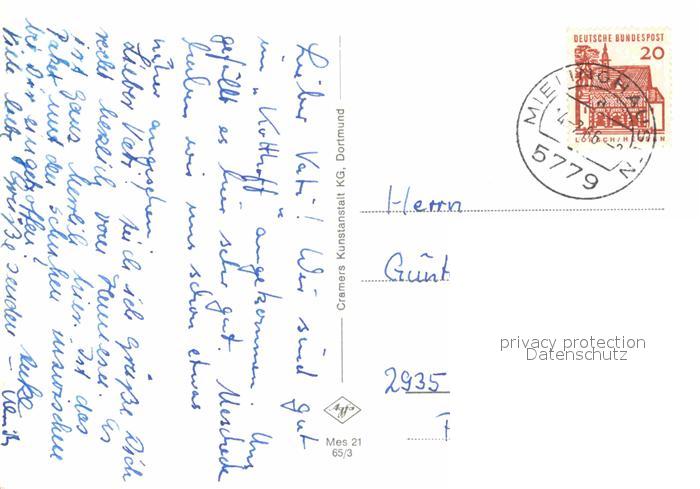 Lieber Vati! Wir sind gut
im „Kotthoff“ angekommen. Uns
gefällt es hier sehr gut. Meschede
haben wir uns schon etwas
näher angesehen.
Lieber Vati! auch ich grüße Dich
recht herzlich vom Hennesee. Es
ist ganz herrlich hier. Ist das
Paket mit den Schuhen inzwischen
bei Dir eingetroffen?
Viele liebe Grüße senden
Cramers Kunstanstalt KG, Dortmund
Mes 21
65/3
DEUTSCHE BUNDESPOST
20
LORSCH/HESSEN
MIELINGHAUSEN
5779
Herrn
Günt
2935
privacy protection
Datenschutz